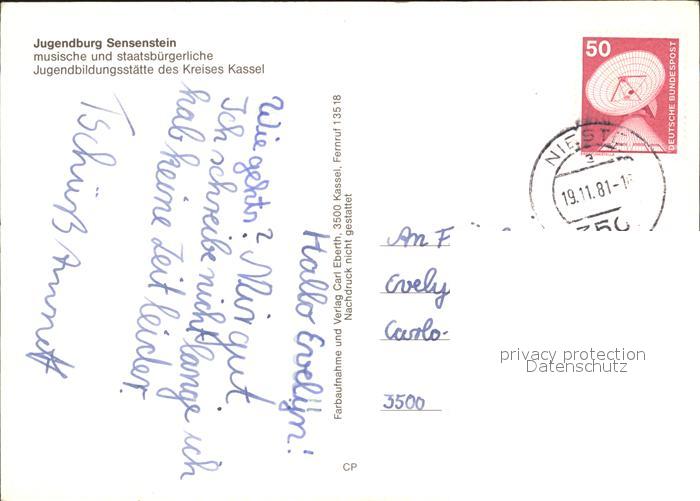 Jugendburg Sensenstein
musische und staatsbürgerliche
Jugendbildungsstätte des Kreises Kassel
Hallo Evelyn!
Wie gehts? Mir gut.
Ich schreibe nicht lange ich
hab keine Zeit leider.
Tschüß Annett
Farbaufnahme und Verlag Carl Eberth, 3500 Kassel, Fernruf 13518
Nachdruck nicht gestattet
CP
50
DEUTSCHE BUNDESPOST
NIEST
19.11.81-1
350
An F
Evely
Carlo-
3500
privacy protection
Datenschutz